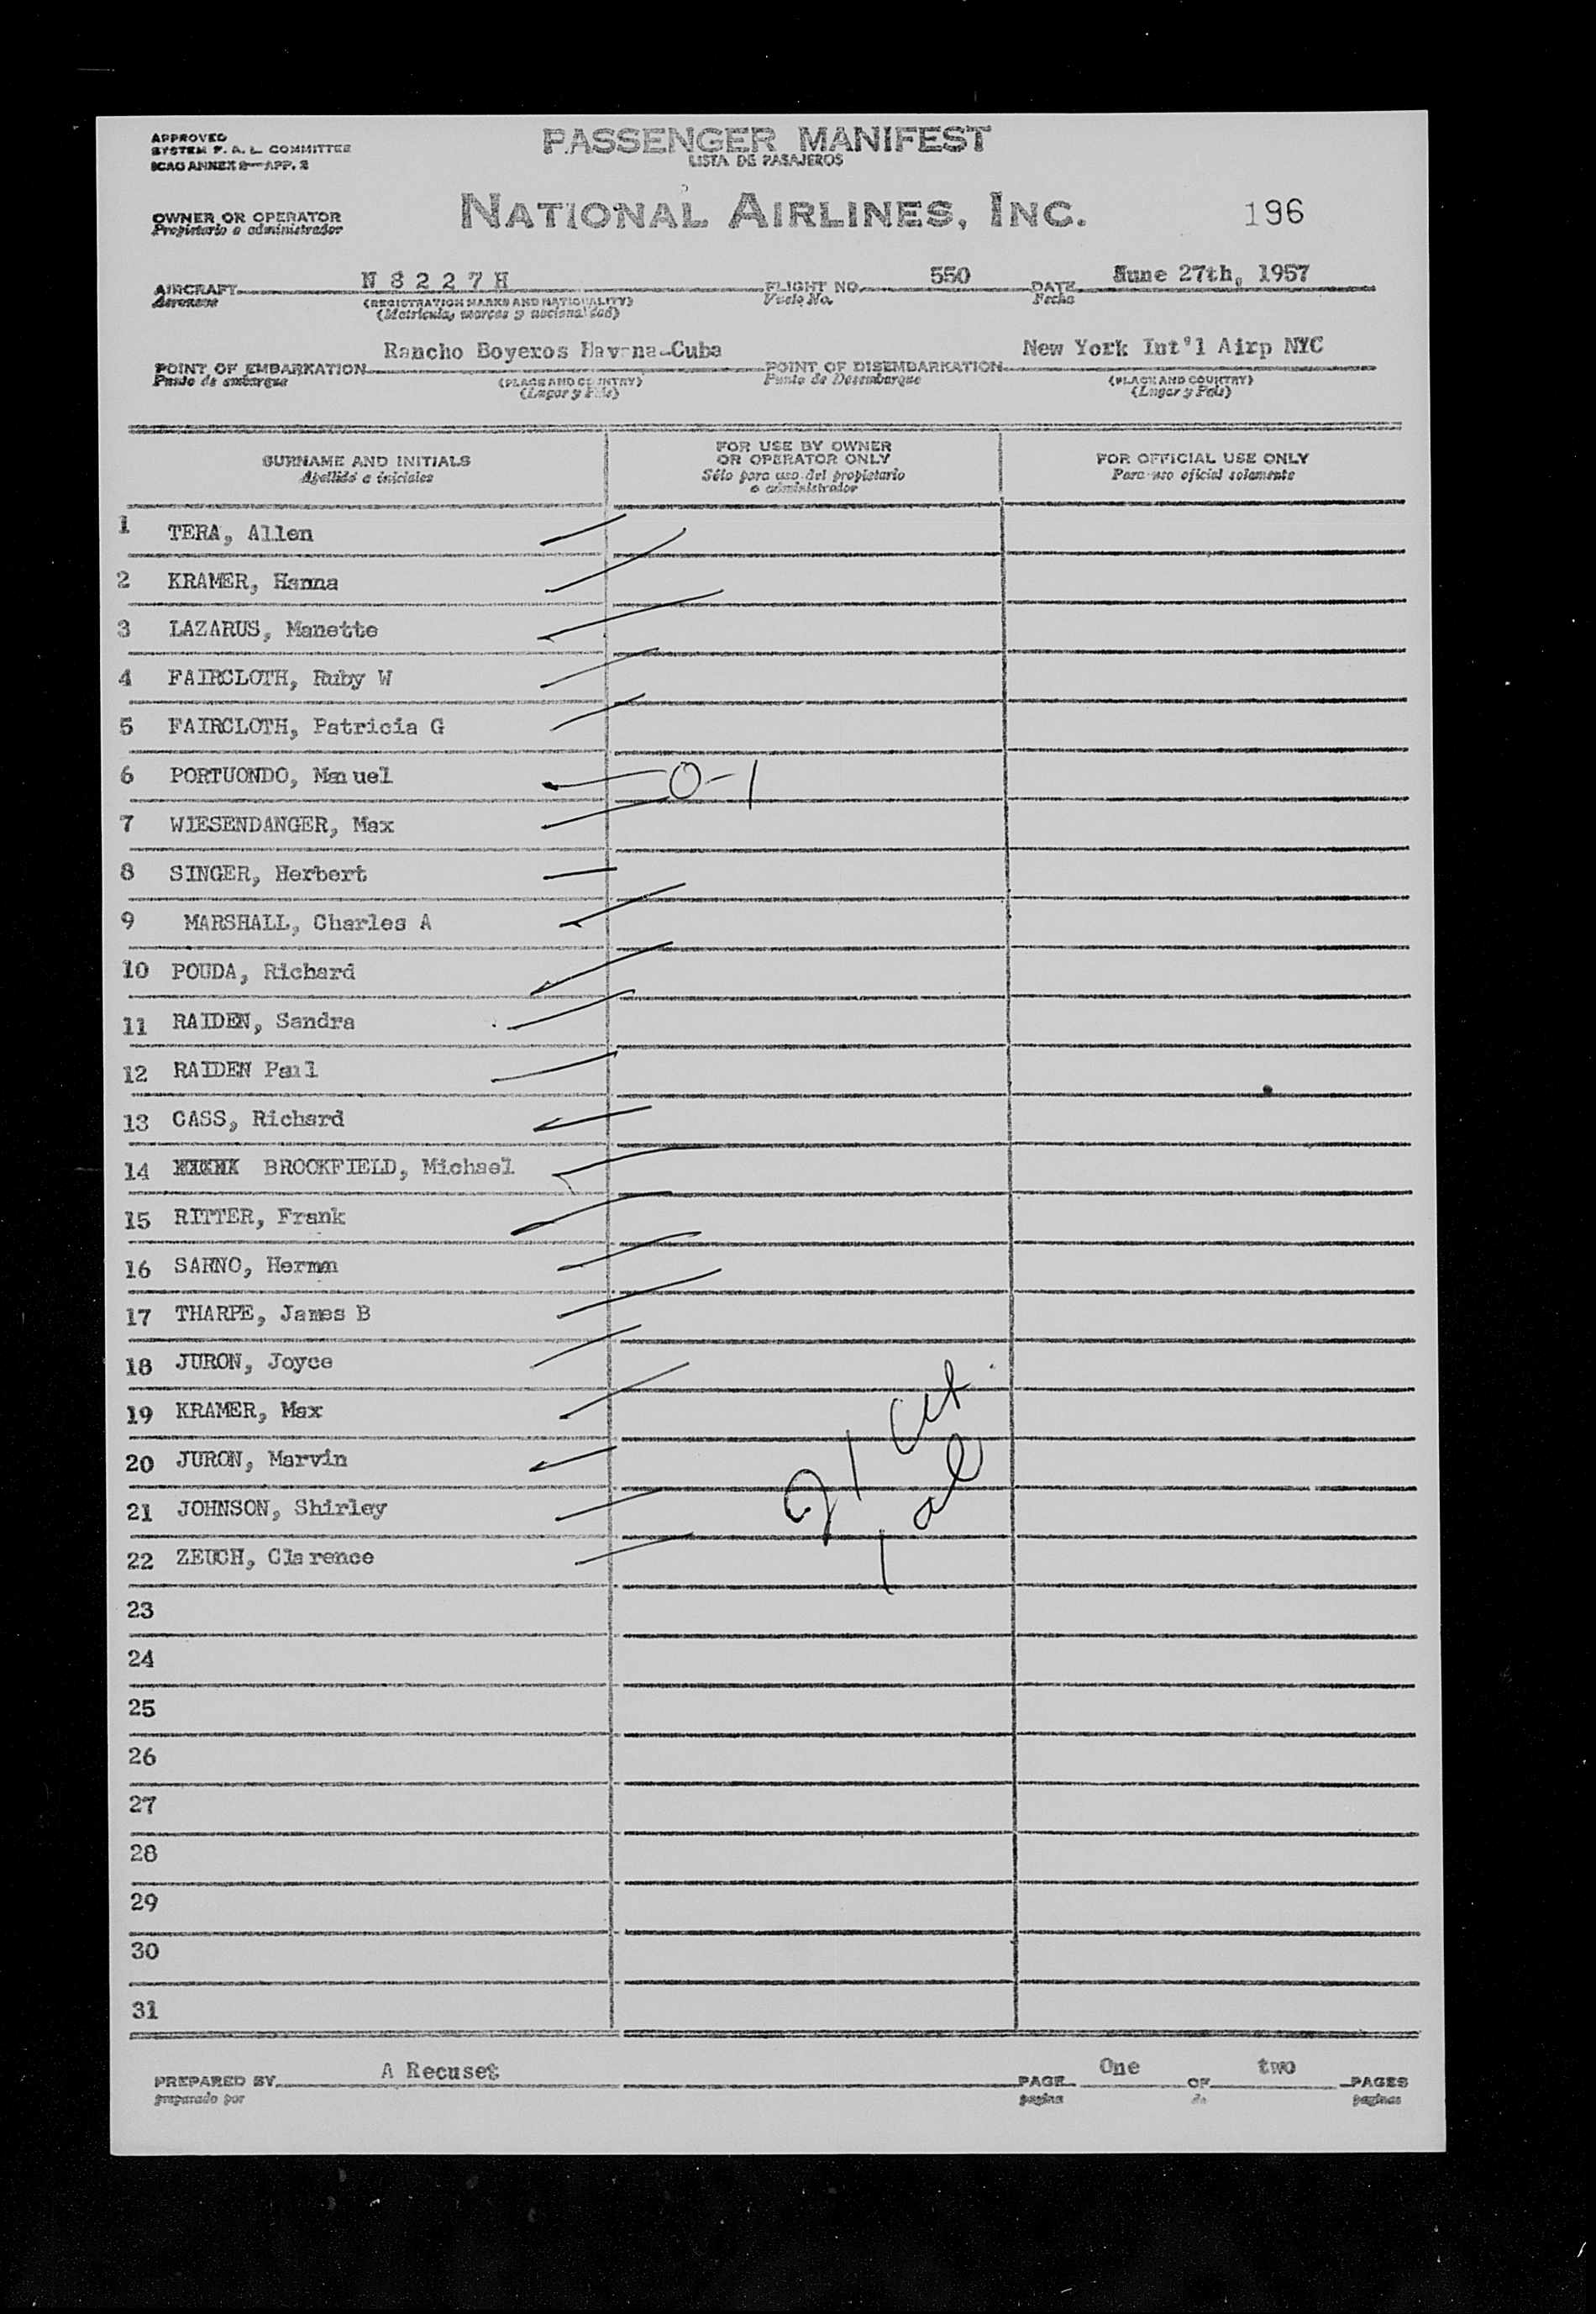 APPROVED
SYSTEM F. A. L. COMMITTEE
ICAO ANNEX 9—APP. 2
PASSENGER MANIFEST
LISTA DE PASAJEROS
OWNER OR OPERATOR
Propietario o administrador
NATIONAL AIRLINES, INC.
196
AIRCRAFT N 8 2 2 7 H FLIGHT NO. 550 DATE June 27th, 1957
Aeronave (REGISTRATION MARKS AND NATIONALITY) Vuelo No. Fecha
(Matricula, marcas y nacionalidad)
POINT OF EMBARKATION Rancho Boyeros Havana-Cuba POINT OF DISEMBARKATION New York Int'l Airp NYC
Punto de embarque (PLACE AND COUNTRY) Punto de Desembarque (PLACE AND COUNTRY)
(Lugar y País) (Lugar y País)
SURNAME AND INITIALS
Apellido e iniciales
FOR USE BY OWNER
OR OPERATOR ONLY
Sólo para uso del propietario
o administrador
FOR OFFICIAL USE ONLY
Para uso oficial solamente
1 TERA, Allen
2 KRAMER, Hanna
3 LAZARUS, Manette
4 FAIRCLOTH, Ruby W
5 FAIRCLOTH, Patricia G
6 PORTUONDO, Manuel 0-1
7 WIESENDANGER, Max
8 SINGER, Herbert
9 MARSHALL, Charles A
10 POUDA, Richard
11 RAIDEN, Sandra
12 RAIDEN Paul
13 CASS, Richard
14 BROOKFIELD, Michael
15 RITTER, Frank
16 SARNO, Herman
17 THARPE, James B
18 JURON, Joyce
19 KRAMER, Max
20 JURON, Marvin
21 JOHNSON, Shirley
22 ZEUCH, Clarence
21 Cit
1 al
23
24
25
26
27
28
29
30
31
PREPARED BY A Recuset PAGE One OF two PAGES
preparado por pagina de paginas